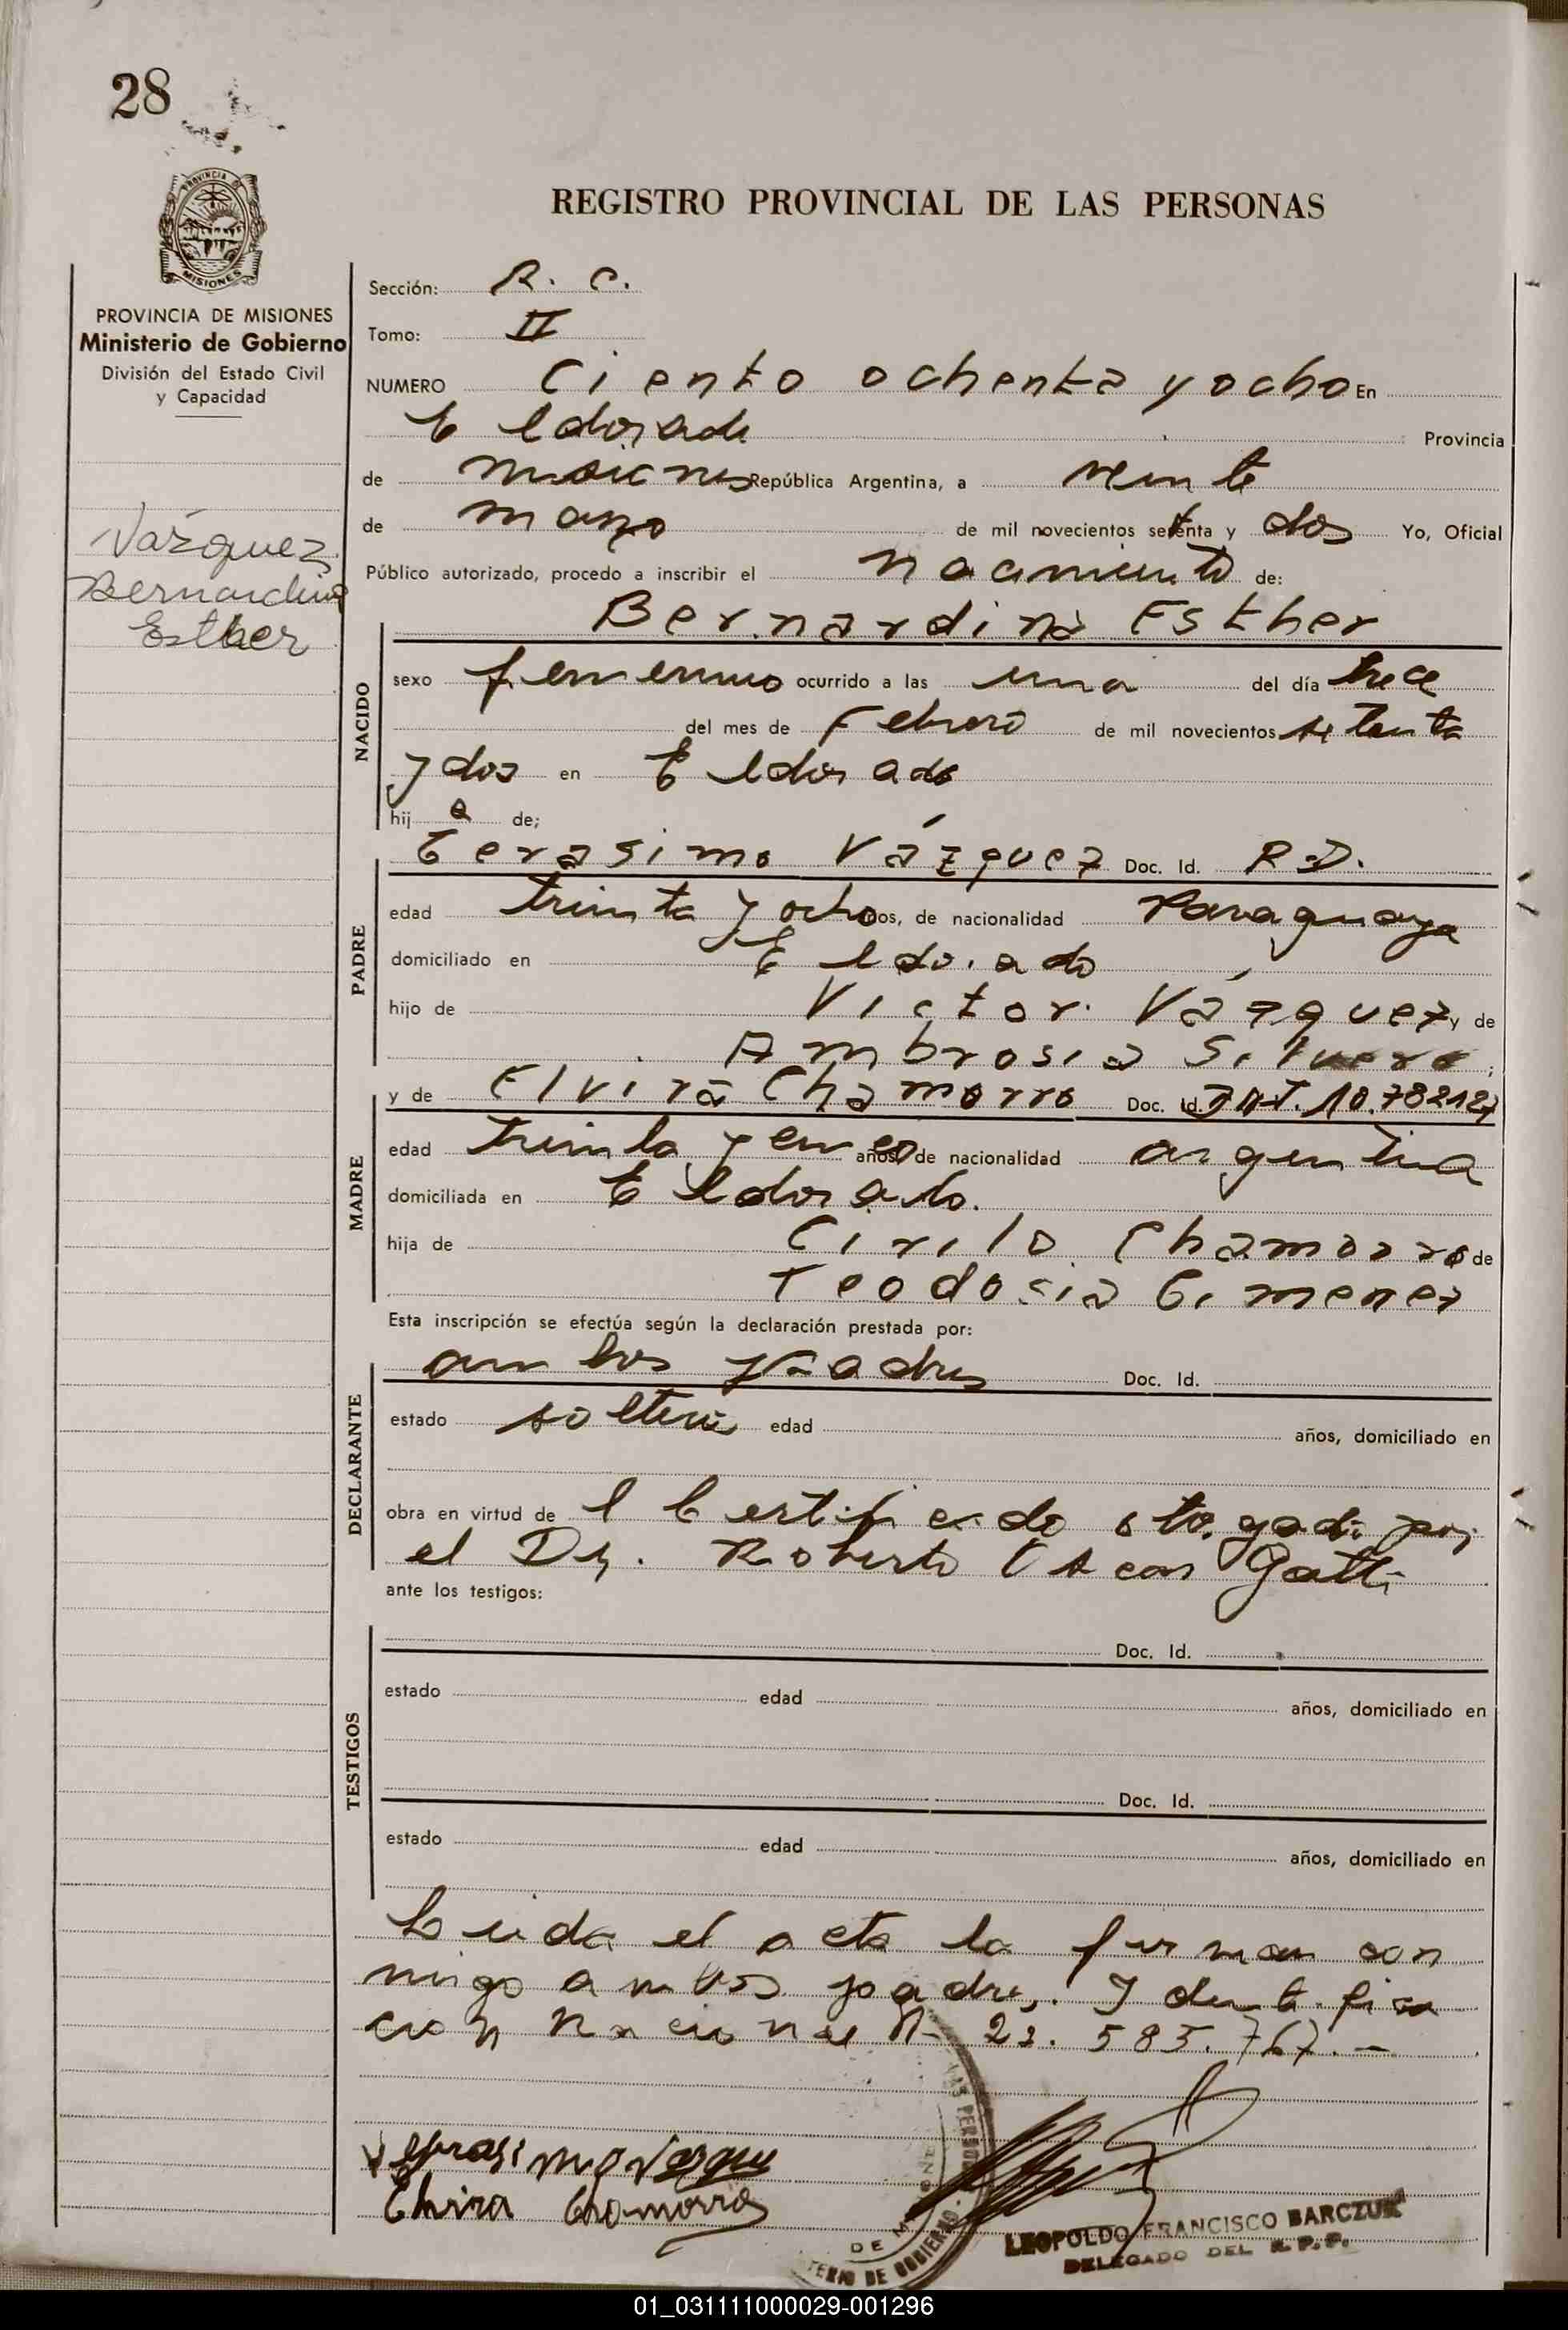 28
PROVINCIA DE
MISIONES
REGISTRO PROVINCIAL DE LAS PERSONAS
PROVINCIA DE MISIONES
Ministerio de Gobierno
División del Estado Civil
y Capacidad
Vázquez
Bernardina
Esther
Sección: R. C.
Tomo: II
NUMERO Ciento ochenta y ocho En
Eldorado Provincia
de Misiones República Argentina, a veinte
de marzo de mil novecientos setenta y dos Yo, Oficial
Público autorizado, procedo a inscribir el nacimiento de:
Bernardina Esther
NACIDO
sexo femenino ocurrido a las una del día trece
del mes de Febrero de mil novecientos setenta
y dos en Eldorado
hija de;
Gerasimo Vázquez Doc. Id. R.D.
PADRE
edad treinta y ocho años, de nacionalidad Paraguaya
domiciliado en Eldorado
hijo de Victor Vázquez y de
Ambrosia Silvero;
y de Elvira Chamorro Doc. Id. 10.782127
MADRE
edad treinta y cinco años, de nacionalidad argentina
domiciliada en Eldorado.
hija de Cirilo Chamorro de
Teodosia Gimenez
Esta inscripción se efectúa según la declaración prestada por:
ambos padres Doc. Id.
DECLARANTE
estado soltero edad años, domiciliado en
obra en virtud del Certificado otorgado por
el Dr. Roberto Oscar Gatti
ante los testigos:
TESTIGOS
Doc. Id.
estado edad años, domiciliado en
Doc. Id.
estado edad años, domiciliado en
Leida el acta la firman con
migo ambos padres. Identifica
cion Nacional N- 22. 585. 767. -
Gerasimo Vazque
Elvira Chamorro
LAS PERSONAS
DE MISIONES
TERIO DE GOBIERNO
LEOPOLDO FRANCISCO BARCZUK
DELEGADO DEL R. P. P.
01_031111000029-001296